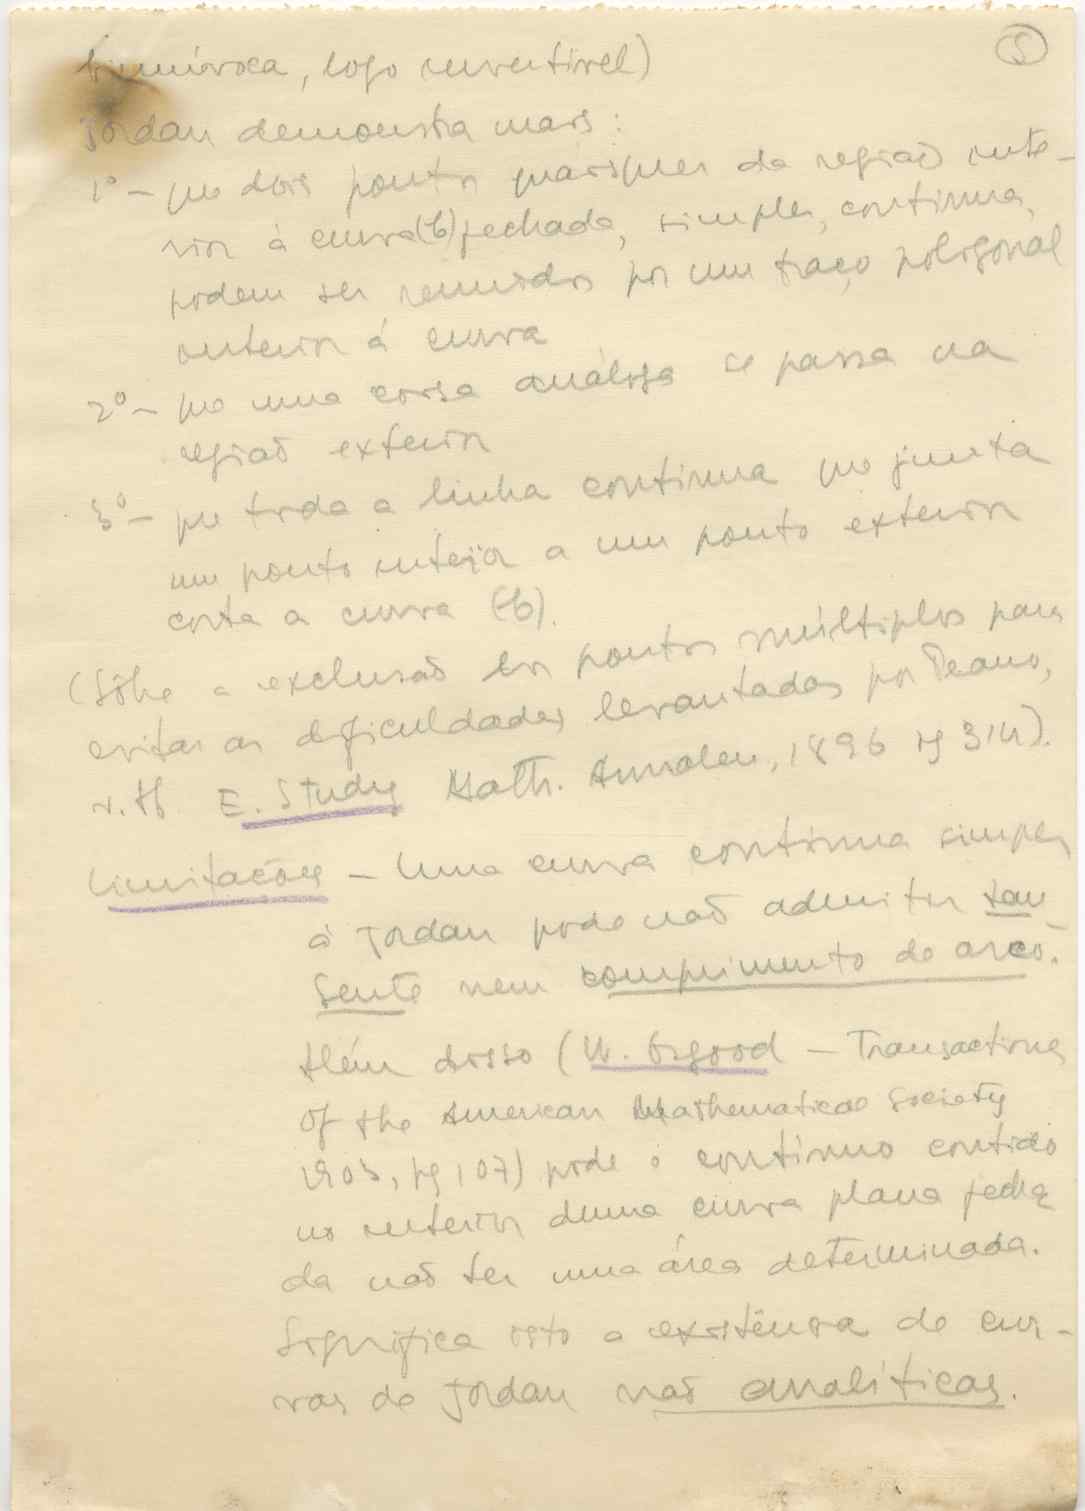 5
biunívoca, logo invertível)
Jordan demonstra mais:
1º - que dois pontos quaisquer da região inte-
rior á curva (C) fechada, simples, contínua,
podem ser reunidos por um traço poligonal
interior á curva
2º - que uma coisa análoga se passa na
região exterior
3º - que toda a linha contínua que junta
um ponto interior a um ponto exterior
corta a curva (C).
(Sôbre a exclusão dos pontos múltiplos para
evitar as dificuldades levantadas por Peano,
v. E. Study Math. Annalen, 1896 pg 314).
Limitações - Uma curva contínua simples
à Jordan pode não admitir tan-
gente nem comprimento de arco.
Além disso (W. Osgood - Transactions
of the American Mathematical Society
1903, pg 107) pode o contínuo contido
no interior duma curva plana fecha
da não ter uma área determinada.
Significa isto a existência de cur-
vas de Jordan não analíticas.